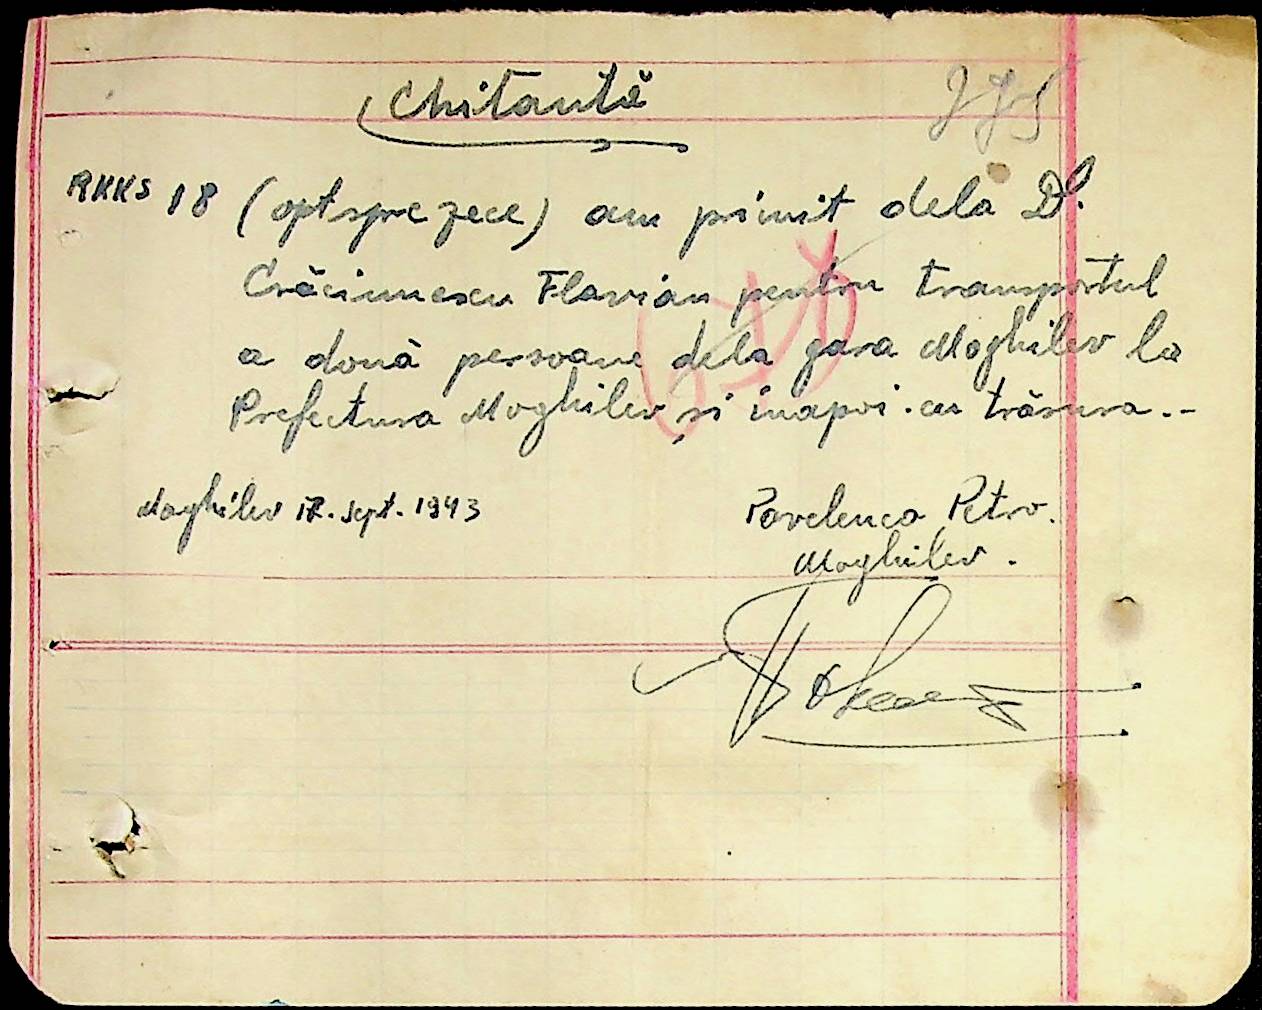 Chitantă
RKKS 18 (optsprezece) am primit dela Dl.
Crăciunescu Flavian pentru transportul
a două persoane dela gara Moghilev la
Prefectura Moghilev și inapoi cu trăsura.-
Moghilev 17. sept. 1943
Pavlenco Petro.
Moghilev.